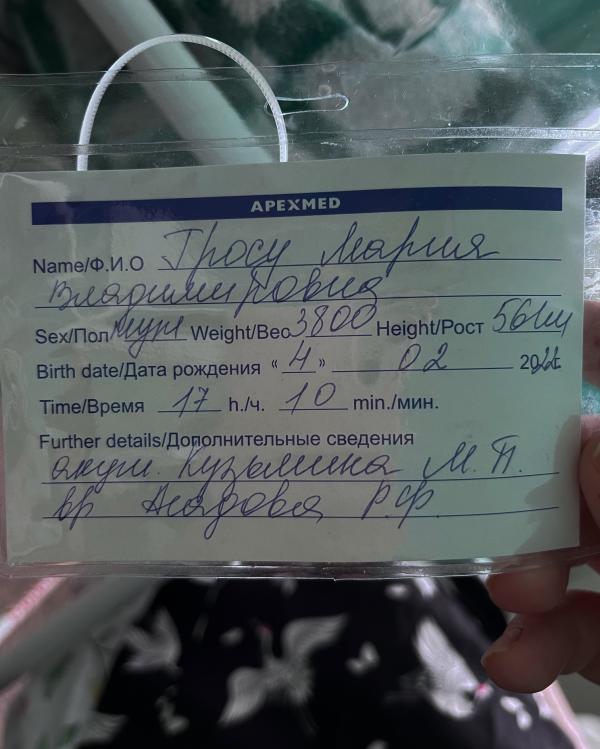 APEXMED
Name/Ф.И.О Гросу Мария
Владимировна
Sex/Пол муж Weight/Вес 3800 Height/Рост 56см
Birth date/Дата рождения « 4 » 02 20
Time/Время 17 h./ч. 10 min./мин.
Further details/Дополнительные сведения
акуш. Кузьмина М.П.
вр Р.Ф.